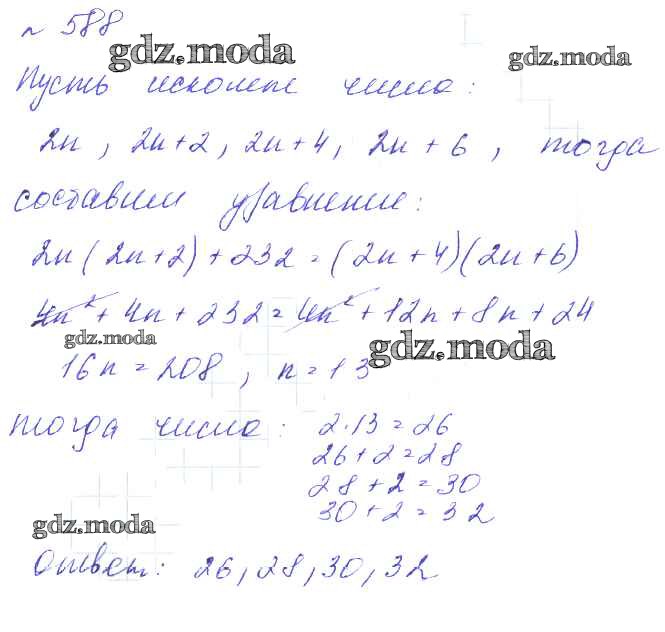 № 588
gdz.moda
gdz.moda
Пусть искомые числа:
2n, 2n+2, 2n+4, 2n+6, тогда
составим уравнение:
2n(2n+2)+232=(2n+4)(2n+6)
4n²+4n+232=4n²+12n+8n+24
gdz.moda
gdz.moda
16n=208, n=13
тогда числа: 2·13=26
26+2=28
28+2=30
30+2=32
gdz.moda
Ответ: 26, 28, 30, 32